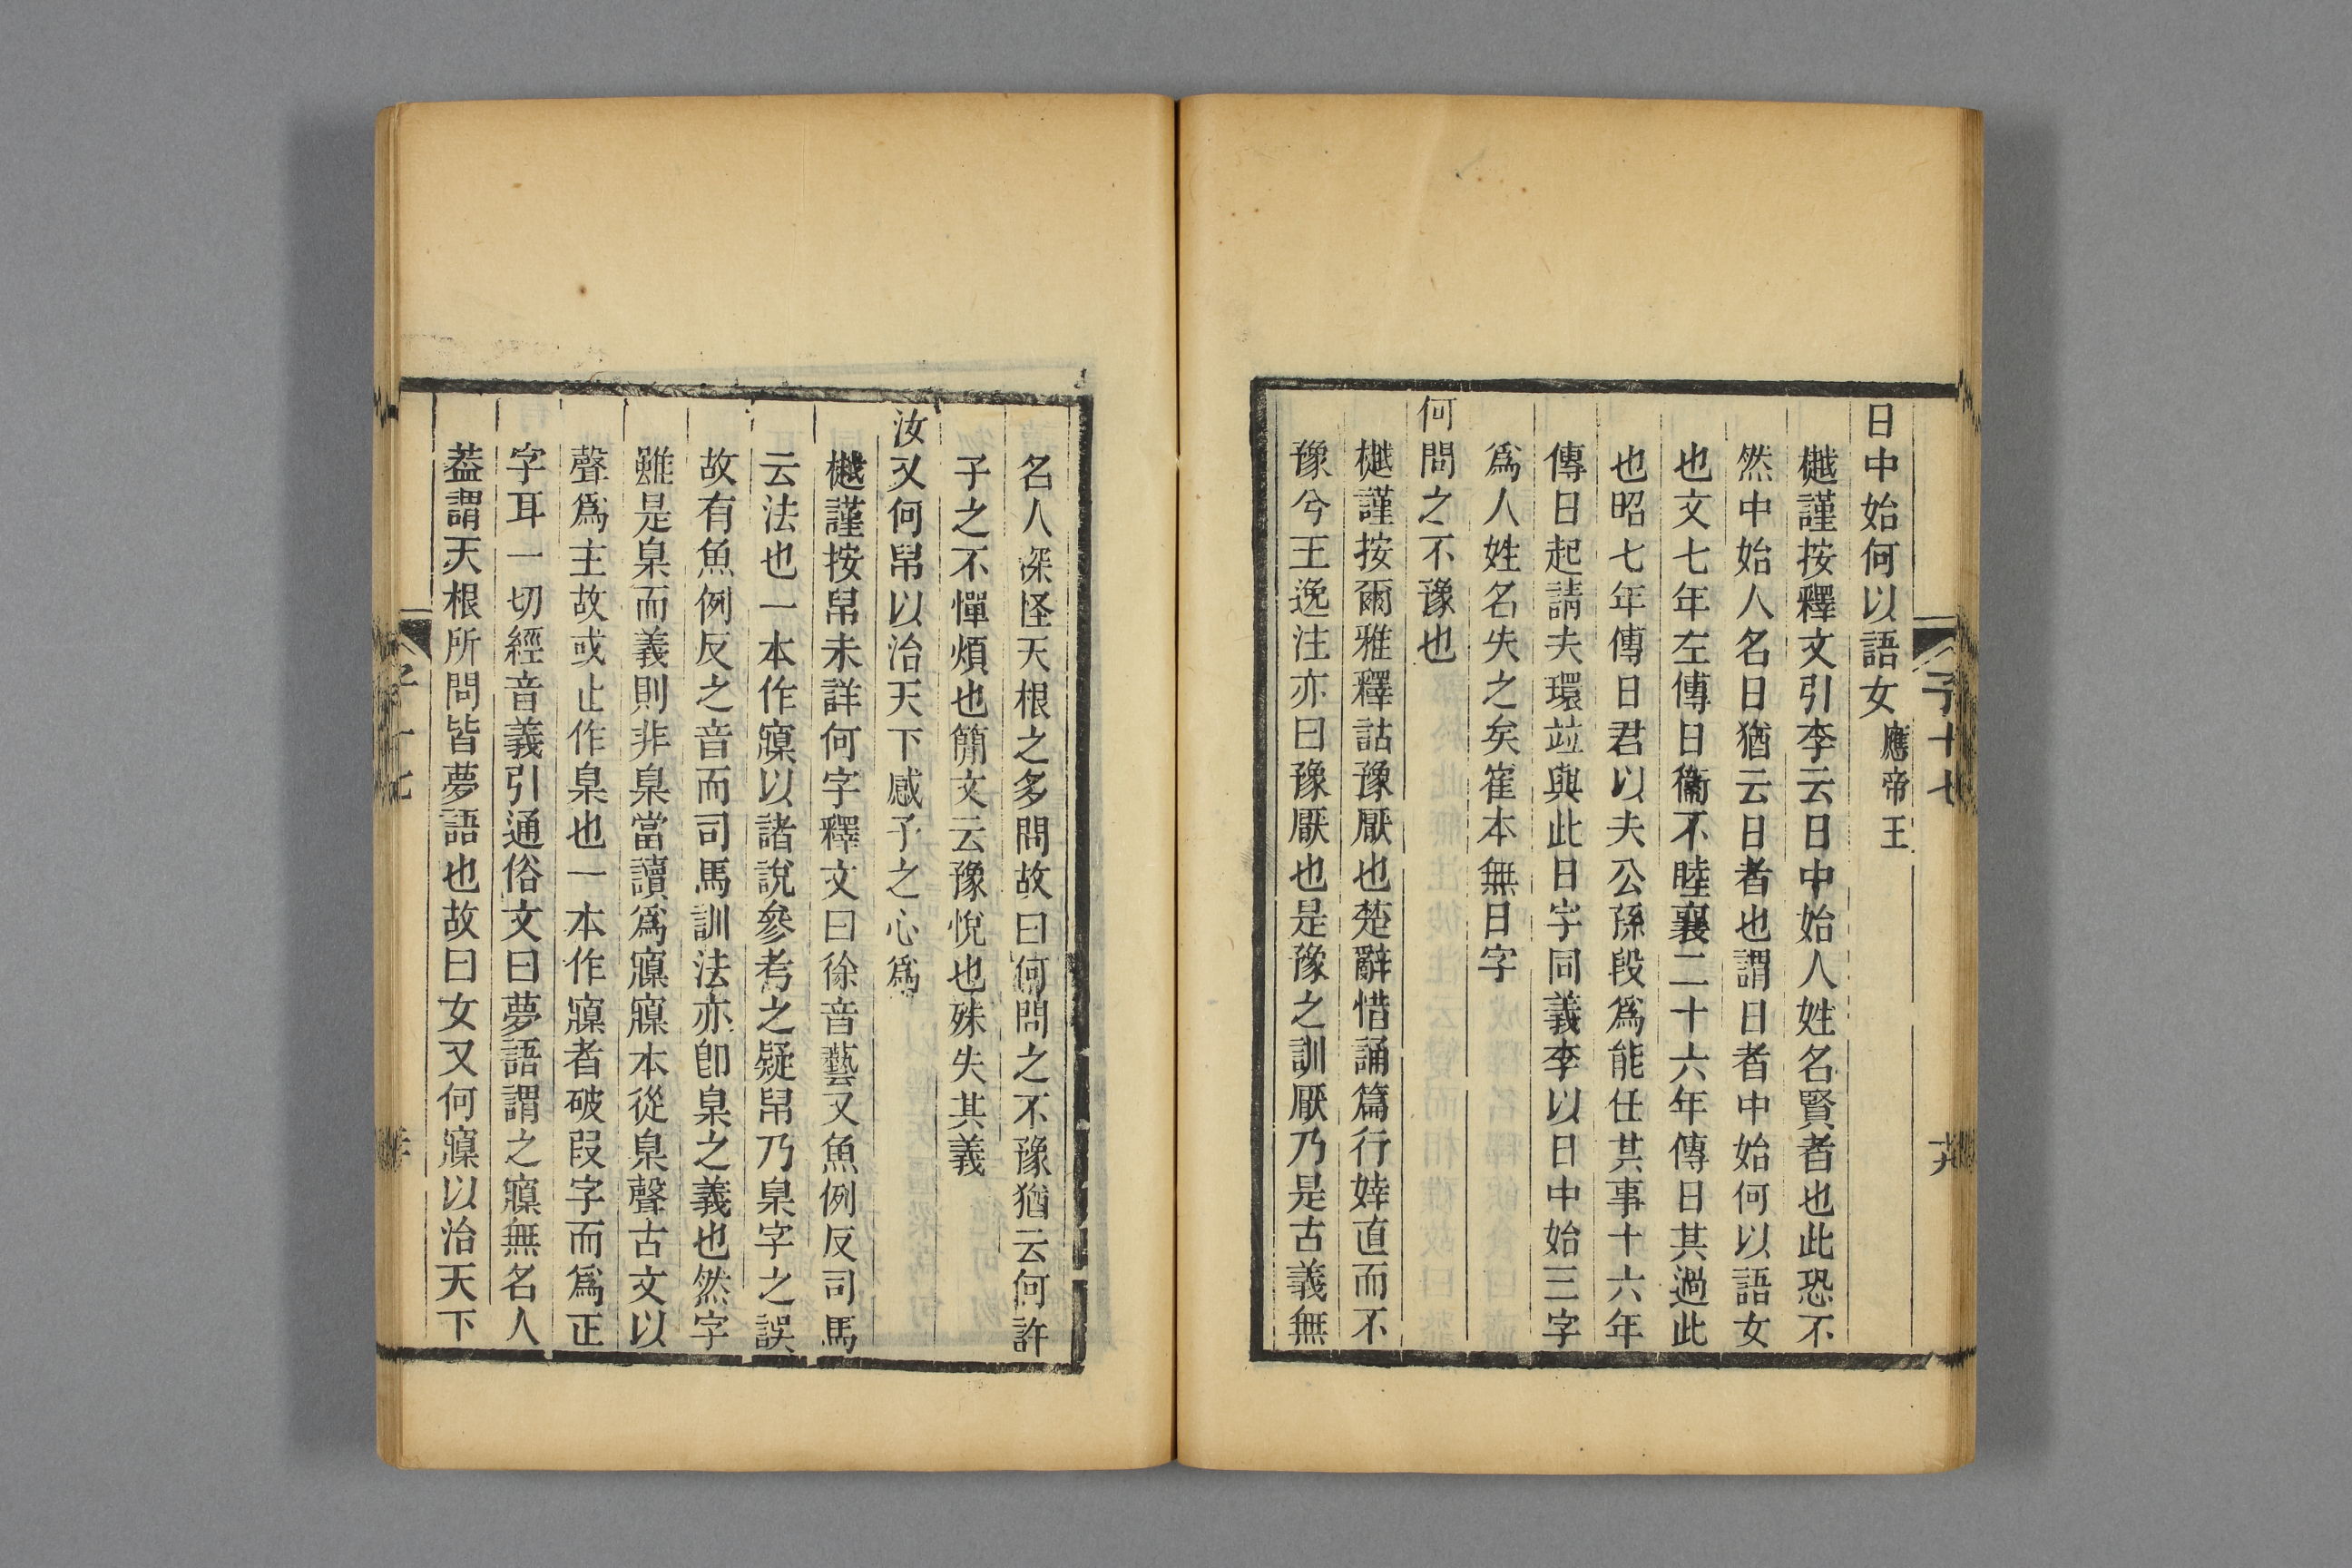 日中始何以語女應帝王
樾謹按釋文引李云日中始人姓名賢者也此恐不
然中始人名日猶云日者也謂日者中始何以語女
也文七年左傳日衞不睦襄二十六年傳日其過此
也昭七年傳日君以夫公孫段爲能任其事十六年
傳日起請夫環竝與此日字同義李以日中始三字
爲人姓名失之矣崔本無日字
何問之不豫也
樾謹按爾雅釋詁豫厭也楚辭惜誦篇行婞直而不
豫兮王逸注亦曰豫厭也是豫之訓厭乃是古義無
名人深怪天根之多問故曰何問之不豫猶云何許
子之不憚煩也簡文云豫悅也殊失其義
汝又何帠以治天下感予之心爲
樾謹按帠未詳何字釋文曰徐音藝又魚例反司馬
云法也一本作寱以諸說參考之疑帠乃臬字之誤
故有魚例反之音而司馬訓法亦卽臬之義也然字
雖是臬而義則非臬當讀爲寱寱本從臬聲古文以
聲爲主故或止作臬也一本作寱者破叚字而爲正
字耳一切經音義引通俗文曰夢語謂之寱無名人
葢謂天根所問皆夢語也故曰女又何寱以治天下
子十七
子十七